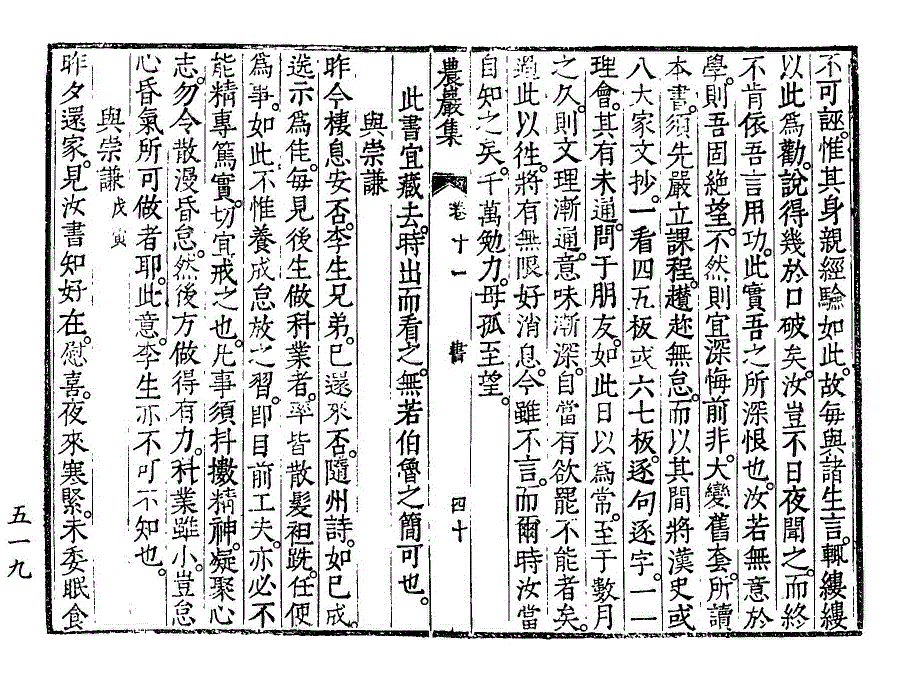 不可誣。惟其身親經驗如此。故每與諸生言。輒縷縷
以此爲勸。說得幾於口破矣。汝豈不日夜聞之。而終
不肯依吾言用功。此實吾之所深恨也。汝若無意於
學。則吾固絶望。不然則宜深悔前非。大變舊套。所讀
本書。須先嚴立課程。趲趁無怠。而以其間將漢史或
八大家文抄。一看四五板或六七板。逐句逐字。一一
理會。其有未通。問于朋友。如此日以爲常。至于數月
之久。則文理漸通。意味漸深。自當有欲罷不能者矣。
過此以往。將有無限好消息。今雖不言。而爾時汝當
自知之矣。千萬勉力。毋孤至望。
農巖集 卷十一 書 四十
此書宜藏去。時出而看之。無若伯魯之簡可也。
與崇謙
昨今棲息安否。李生兄弟。已還來否。隨州詩。如已成。
选示爲佳。每見後生做科業者。率皆散髮袒跣。任便
爲事。如此不惟養成怠放之習。卽目前工夫。亦必不
能精專篤實。切宜戒之也。凡事須抖擻精神。凝聚心
志。勿令散漫昏怠。然後方做得有力。科業雖小。豈怠
心昏氣所可做者耶。此意。李生亦不可不知也。
與崇謙 戊寅
昨夕還家。見汝書知好在。慰喜。夜來寒緊。未委眠食
五一九